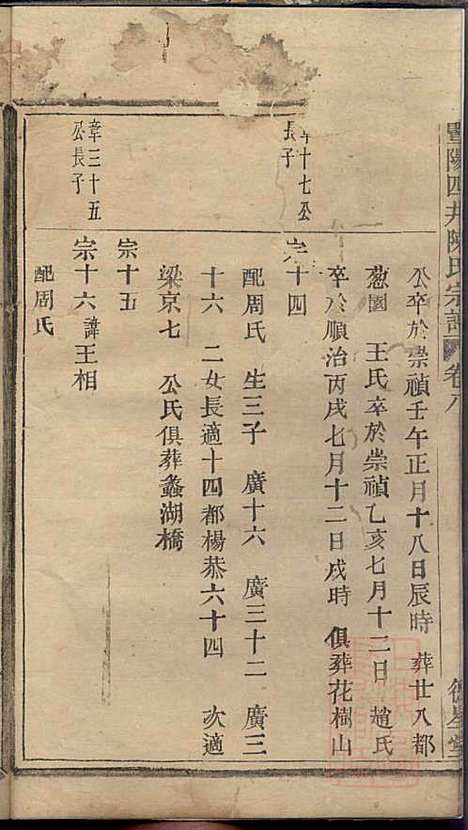 暨陽四井陳氏宗譜 卷八
公卒於崇禎壬午正月十八日辰時 葬廿八都
葱園 王氏卒於崇禎乙亥七月十二日 趙氏
卒於順治丙戌七月十二日戌時 俱葬花樹山
十七公
長子
宗十四
配周氏 生三子 廣十六 廣三十二 廣三
十六 二女長適十四都楊恭六十四 次適
梁京七 公氏俱葬蠡湖橋
宗十五
章三十五
公長子
宗十六諱王相
配周氏